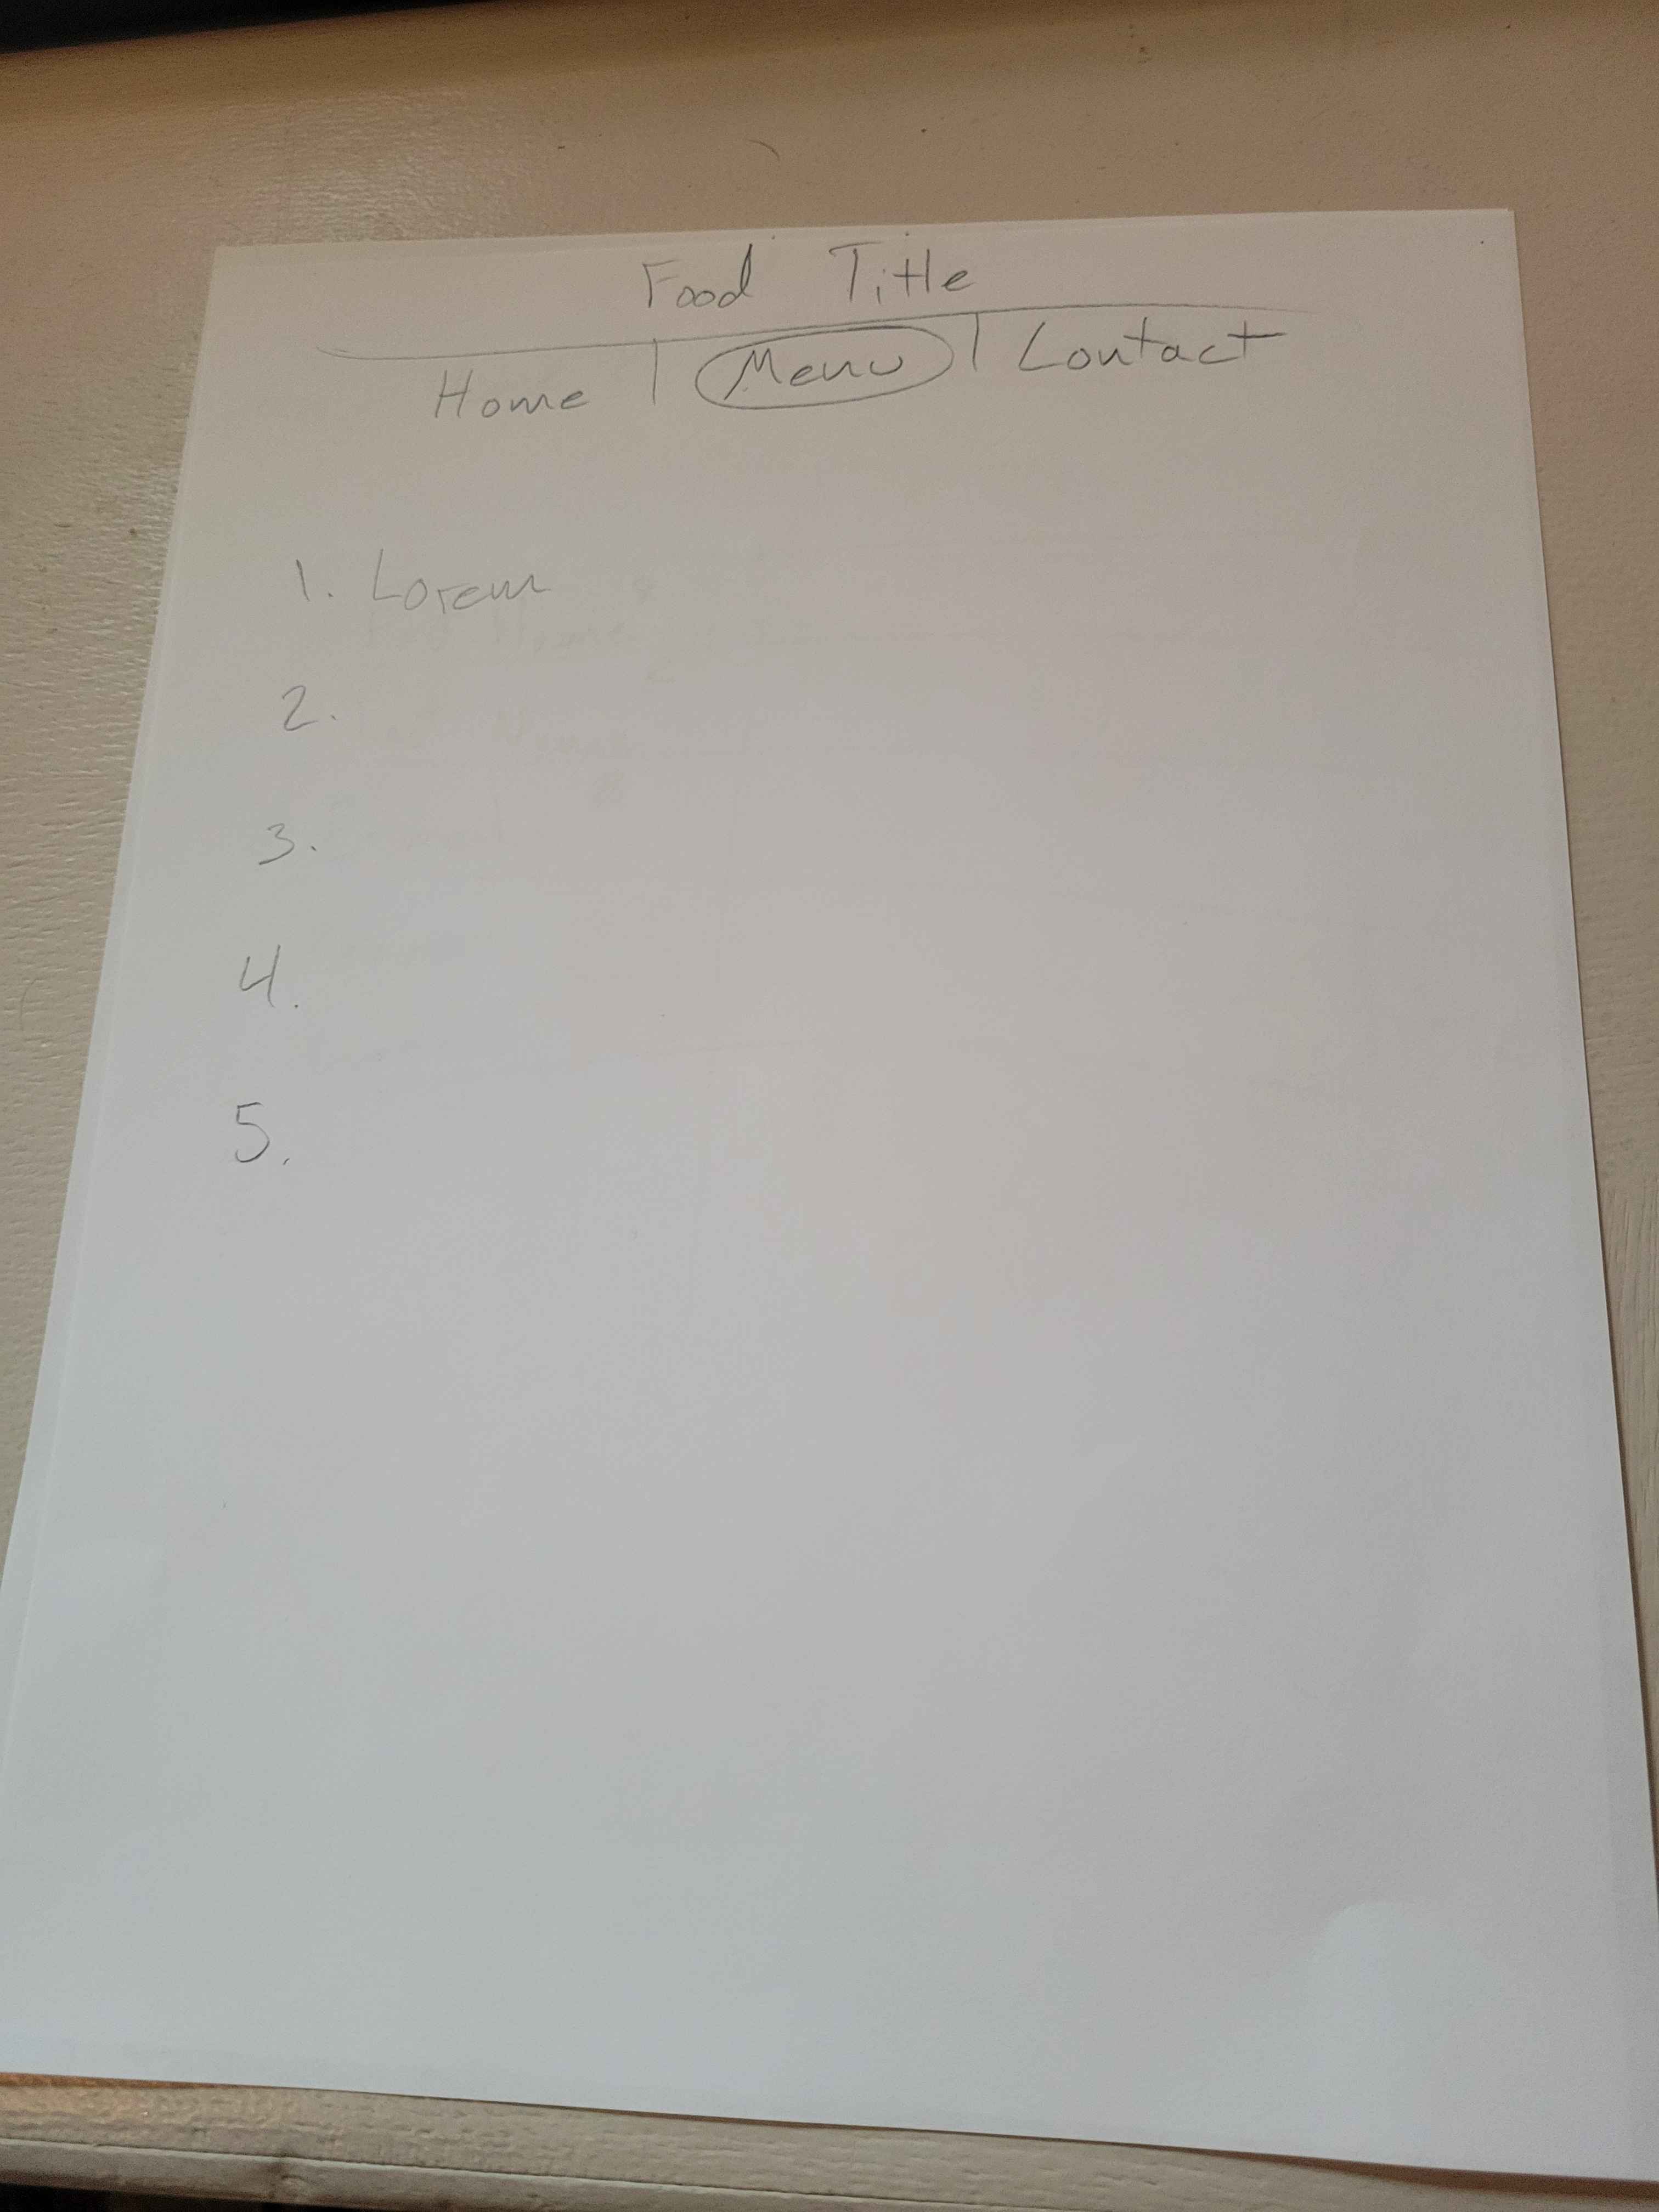 Food Title
Home | Menu | Contact
1. Lorem
2.
3.
4.
5.